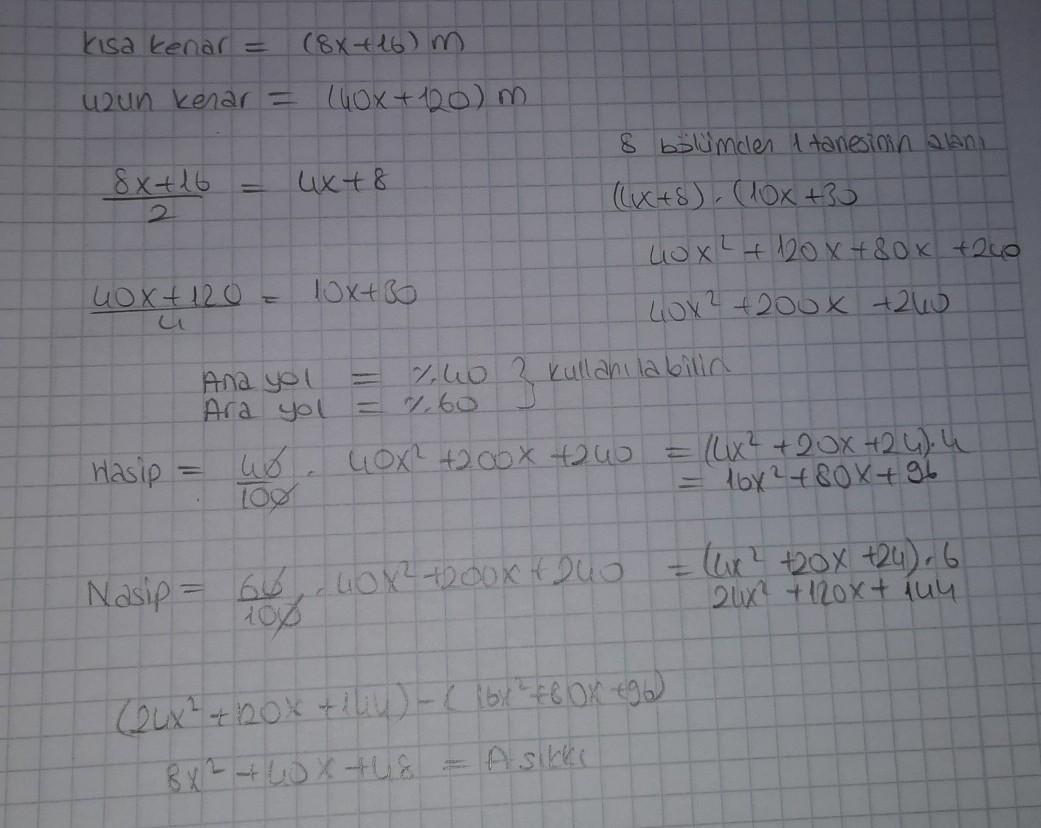 kısa kenar = (8x+16) m
uzun kenar = (40x+120) m
8x+16 / 2 = 4x+8
40x+120 / 4 = 10x+30
8 bölümden 1 tanesinin alanı
(4x+8).(10x+30
40x² + 120x + 80x + 240
40x² + 200x + 240
Ana yol = %40 } kullanılabilir
Ara yol = %60
Hasip = 40/100 . 40x² + 200x + 240 = (4x² + 20x + 24).4
= 16x² + 80x + 96
Nasip = 60/100 . 40x² + 200x + 240 = (4x² + 20x + 24).6
24x² + 120x + 144
(24x² + 120x + 144) - (16x² + 80x + 96)
8x² + 40x + 48 = A şıkkı